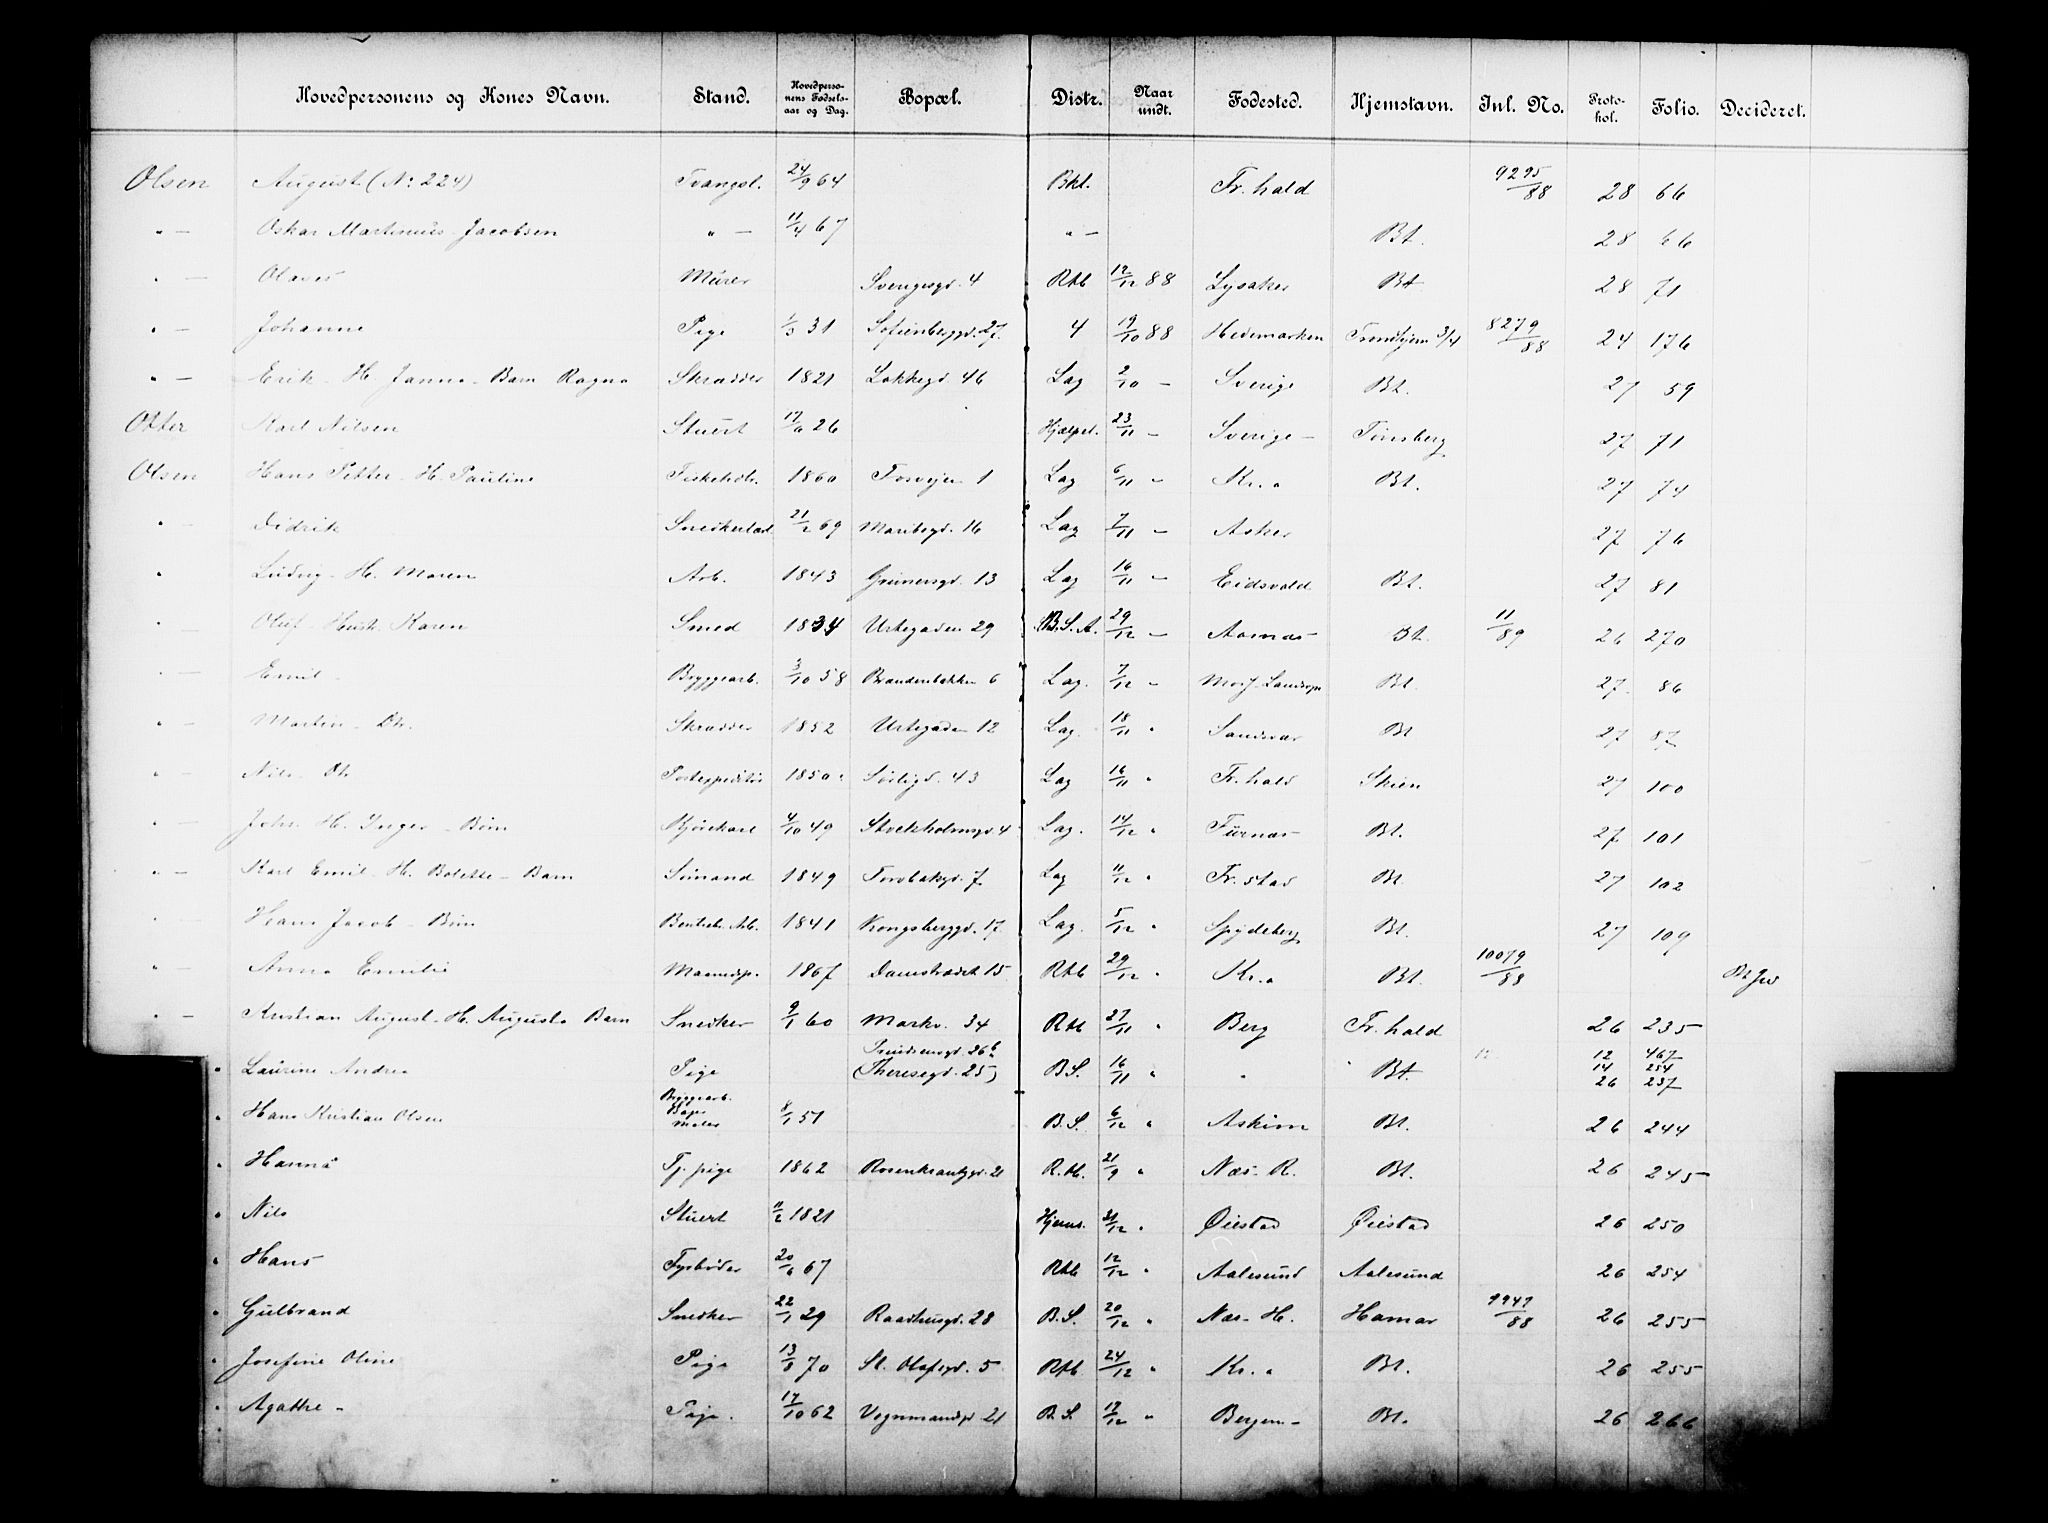 Hovedpersonens og Kones Navn. Stand. Hovedpersonens Fødselsaar og Dag. Bopæl. Distr. Naar undt. Fødested. Hjemstavn. Jnl. No. Protokol. Folio. Decideret.
Olsen August (No: 224) Tvangsl. 24/9 64 Bkl. Fr.hald 9295/88 28 66
" — Oskar Martinius Jacobsen " — 11/4 67 " — Bt. 28 66
" — Olaves Murer Sverigesgd. 4 Rtb 12/12 88 Lysaker Bt 28 71
" — Johanne Pige 1/3 31 Sofienberggd. 27. 4 19/10 88 Hedemarken Trondhjem 3/4 8279/88 24 176
" — Erik - H. Janna - Barn Ragna Skrædder 1821 Løkkegd 46 Lag 2/10 — Sverige Bt. 27 59
Otter Karl Nilsen Stuert 17/6 26 Hjælpel. 23/11 — Sverige — Tønsberg 27 71
Olsen Hans Petter - H. Pauline Fiskehdlr. 1860 Torvejen 1 Lag 6/11 " Kr.a Bt. 27 74
" Didrik Snedkerlærl. 21/2 69 Maribogd. 16 Lag 7/11 — Asker 27 76
" Ludvig - H. Maren Arb. 1843 Grünersgd. 13 Lag 16/11 — Eidsvold Bt. 27 81
" Oluf - Hustr. Karen Smed 1834 Urtegaden 29 B.S.A. 29/12 — Aamas Bt. 11/89 26 270
" — Emil - Bryggearb. 3/10 58 Brandenløkken 6 Lag. 7/12 — Bt. 27 86
" — Martin - Dtr. Skrædder 1852 Urtegaden 12 Lag. 18/11 " Sandsvær Bt 27 87
" — Nils - Dtr Postexpeditør 1850 Sørligd. 43 Lag 16/11 " Fr.hald Skien 27 100
" — Johs. H. Inger - Børn Kjørekarl 4/10 49 Stockholmsgd. 4 Lag. 14/12 " Furnæs Bt. 27 101
" — Karl Emil - H. Bolette - Barn Sømand 1849 Torvbakgd. 7 Lag 11/12 " Fr.stad Bt. 27 102
" — Hans Jacob - Børn Arb. 1841 Kongsberggd. 17. Lag. 5/12 " Spydeberg Bt. 27 109
" — Anna Emilie 1867 Damstrædet 15 Rtb 29/12 " Kr.a Bt. 10079/88
" — Kristian August - H. Augusta Barn Snedker 9/1 60 Markv. 34 Rtb 27/11 " Berg Fr.hald 26 235
" Laurine Andrea Pige Trondsensgd. 26 b (Theresegd. 25) B.S. 16/11 " " Bt. 12 467 14 254 26 237
" Hans Kristian Olsen Bryggearb. Bager Maler 8/1 51 B.S. 6/12 " Askim Bt. 26 244
" Hanna Tj. pige 1862 Rosenkrantzgd. 21 R.tb. 21/9 " Næs - R. Bt. 26 245
" Nils Stuert 11/2 1821 Hjems. 31/12 " Øiestad Øiestad 26 250
" Hans Fyrbøder 20/6 67 Rtb 12/12 " Aalesund Aalesund 26 254
" Gulbrand Snedker 22/1 29 Raadhusgd. 28 B.S. 20/12 " Næs - H. Hamar 9947/88 26 255
" Josefine Oline Pige 13/8 70 St. Olafsgd. 5 Rtb 24/12 " Kr.a Bt. 26 255
" Agathe - Pige. 17/10 62 Vognmandsgd. 21 B.S. 17/12 " Bergen - Bt. 26 266